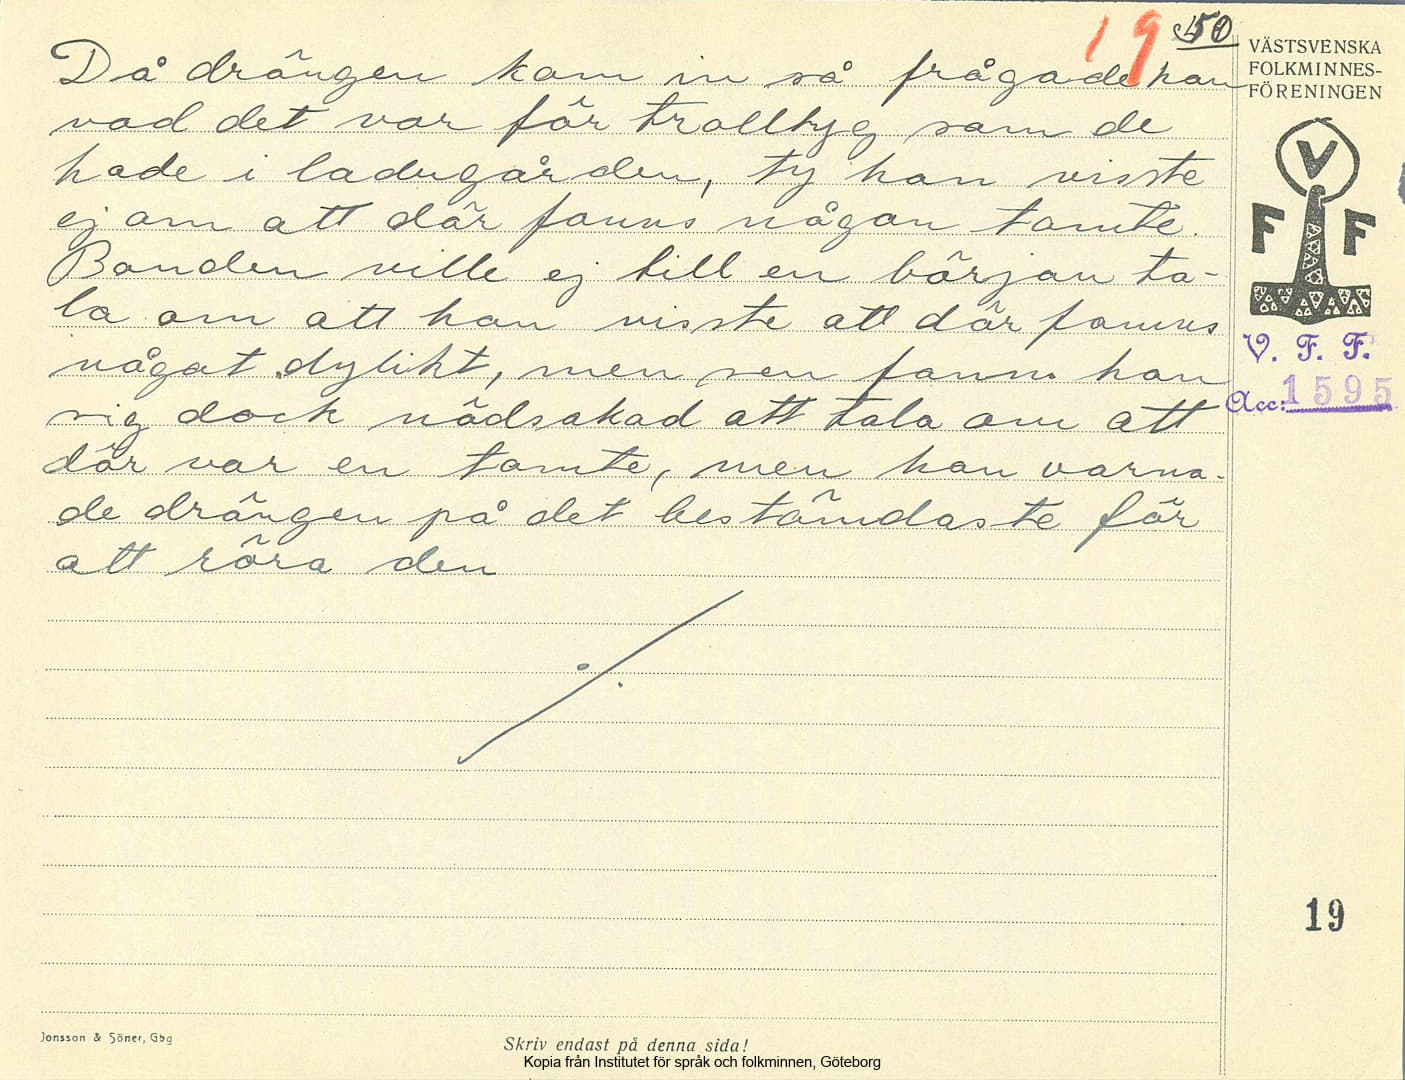 19 50
Då drängen kom in så frågade han
vad det var för trolltyg som de
hade i ladugården, ty han visste
ej om att där fanns någon tomte.
Bonden ville ej till en början ta-
la om att han visste att där fanns
något dylikt, men sen fann han
sig dock nödsakad att tala om att
där var en tomte, men han varna-
de drängen på det bestämdaste för
att röra den
VÄSTSVENSKA
FOLKMINNES-
FÖRENINGEN
V
F F
V. F. F.
Acc: 1595
19
Jonsson & Söner, Gbg
Skriv endast på denna sida!
Kopia från Institutet för språk och folkminnen, Göteborg